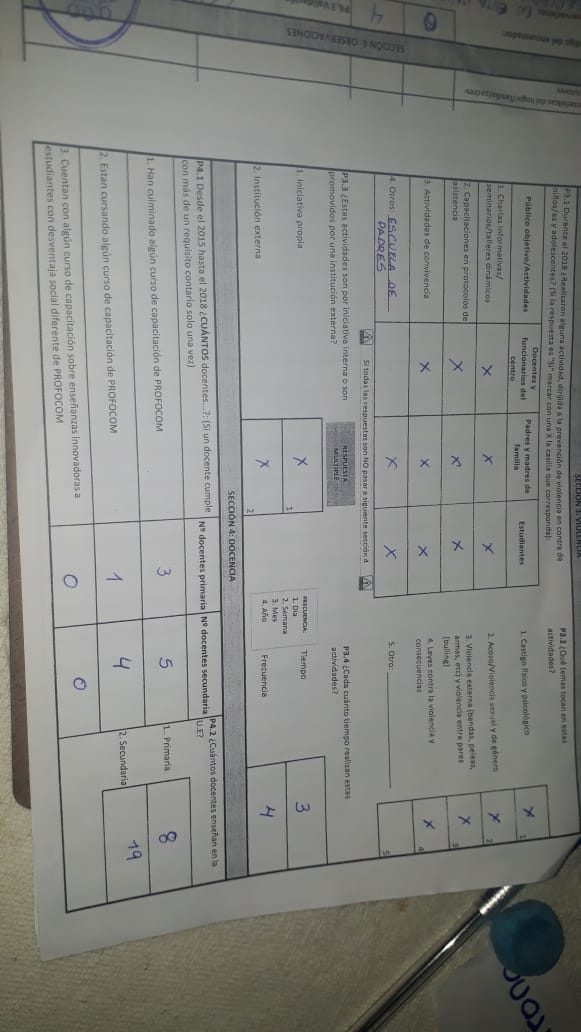 SECCIÓN 3: VIOLENCIA
P3.1 Durante el 2018 ¿Realizaron alguna actividad, dirigida a la prevención de violencia en contra de
niños/as y adolescentes? (Si la respuesta es "Si" marcar con una X la casilla que corresponda):
Público objetivo/Actividades
Docentes y
funcionarios del
centro
Padres y madres de
familia
Estudiantes
1. Charlas informativas/
seminarios/talleres dinámicos
X X X
2. Capacitaciones en protocolos de
asistencia
X X X
3. Actividades de convivencia
X X X
4. Otros: ESCUELA DE
PADRES
X X
Si todas las respuestas son NO pasar a siguiente sección 4
P3.2 ¿Qué temas tocan en estas
actividades?
1. Castigo físico y psicológico
X 1
2. Acoso/Violencia sexual y de género
X 2
3. Violencia externa (bandas, peleas,
armas, etc) y violencia entre pares
(bulling)
X 3
4. Leyes contra la violencia y
consecuencias
X 4
5. Otro:
5
P3.3 ¿Estas actividades son por iniciativa interna o son
promovidos por una institución externa?
RESPUESTA
MULTIPLE
1. Iniciativa propia
X 1
2. Institución externa
X 2
P3.4 ¿Cada cuánto tiempo realizan estas
actividades?
FRECUENCIA:
1. Día
2. Semana
3. Mes
4. Año
Tiempo
3
Frecuencia
4
SECCIÓN 4: DOCENCIA
P4.1 Desde el 2015 hasta el 2018 ¿CUÁNTOS docentes...?: (Si un docente cumple
con más de un requisito contarlo solo una vez)
Nº docentes primaria
Nº docentes secundaria
1. Han culminado algún curso de capacitación de PROFOCOM
3 5
2. Estan cursando algún curso de capacitación de PROFOCOM
1 4
3. Cuentan con algún curso de capacitación sobre enseñanzas innovadoras a
estudiantes con desventaja social diferente de PROFOCOM
0 0
P4.2 ¿Cuántos docentes enseñan en la
U.E?
1.. Primaria
8
2. Secundaria
19
SECCIÓN 6: OBSERVACIONES
4